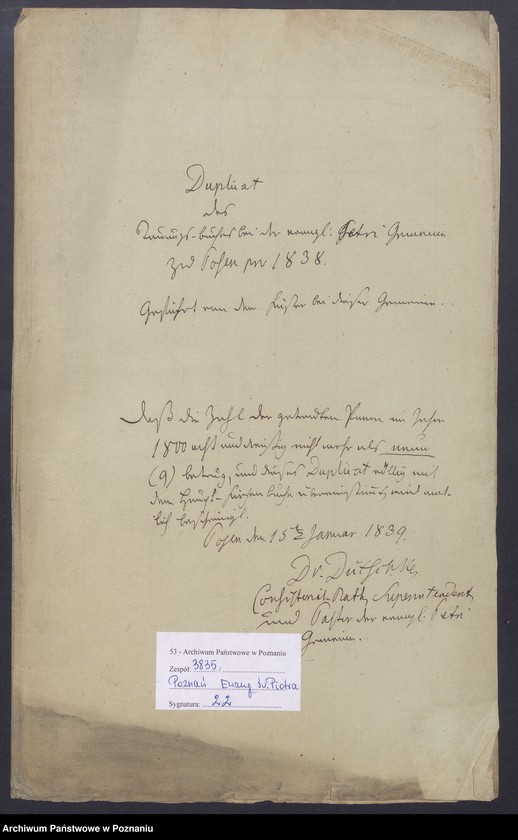 Duplicat
des
Trauungs-buches bei der evangl: Petri Gemeine
zu Posen pro 1838.
Geführt von dem Küster bei dieser Gemeine.
Daß die Zahl der getrauten Paare im Jahre
1800 acht und dreißig nicht mehr als neun
(9) betrug, und dieses Duplicat völlig mit
dem Haupt-Kirchenbuche übereinstimmt, wird amt-
lich bescheinigt.
Posen den 15ten Januar 1839.
Dr. Dütschke
Consistorial-Rath, Superintendent
und Pastor der evangl. Petri
Gemeine.
53 - Archiwum Państwowe w Poznaniu
Zespół: 3835/
Poznań Ewang. św. Piotra
Sygnatura: 22
Archiwum Państwowe w Poznaniu
Archiwum Państwowe w Poznaniu